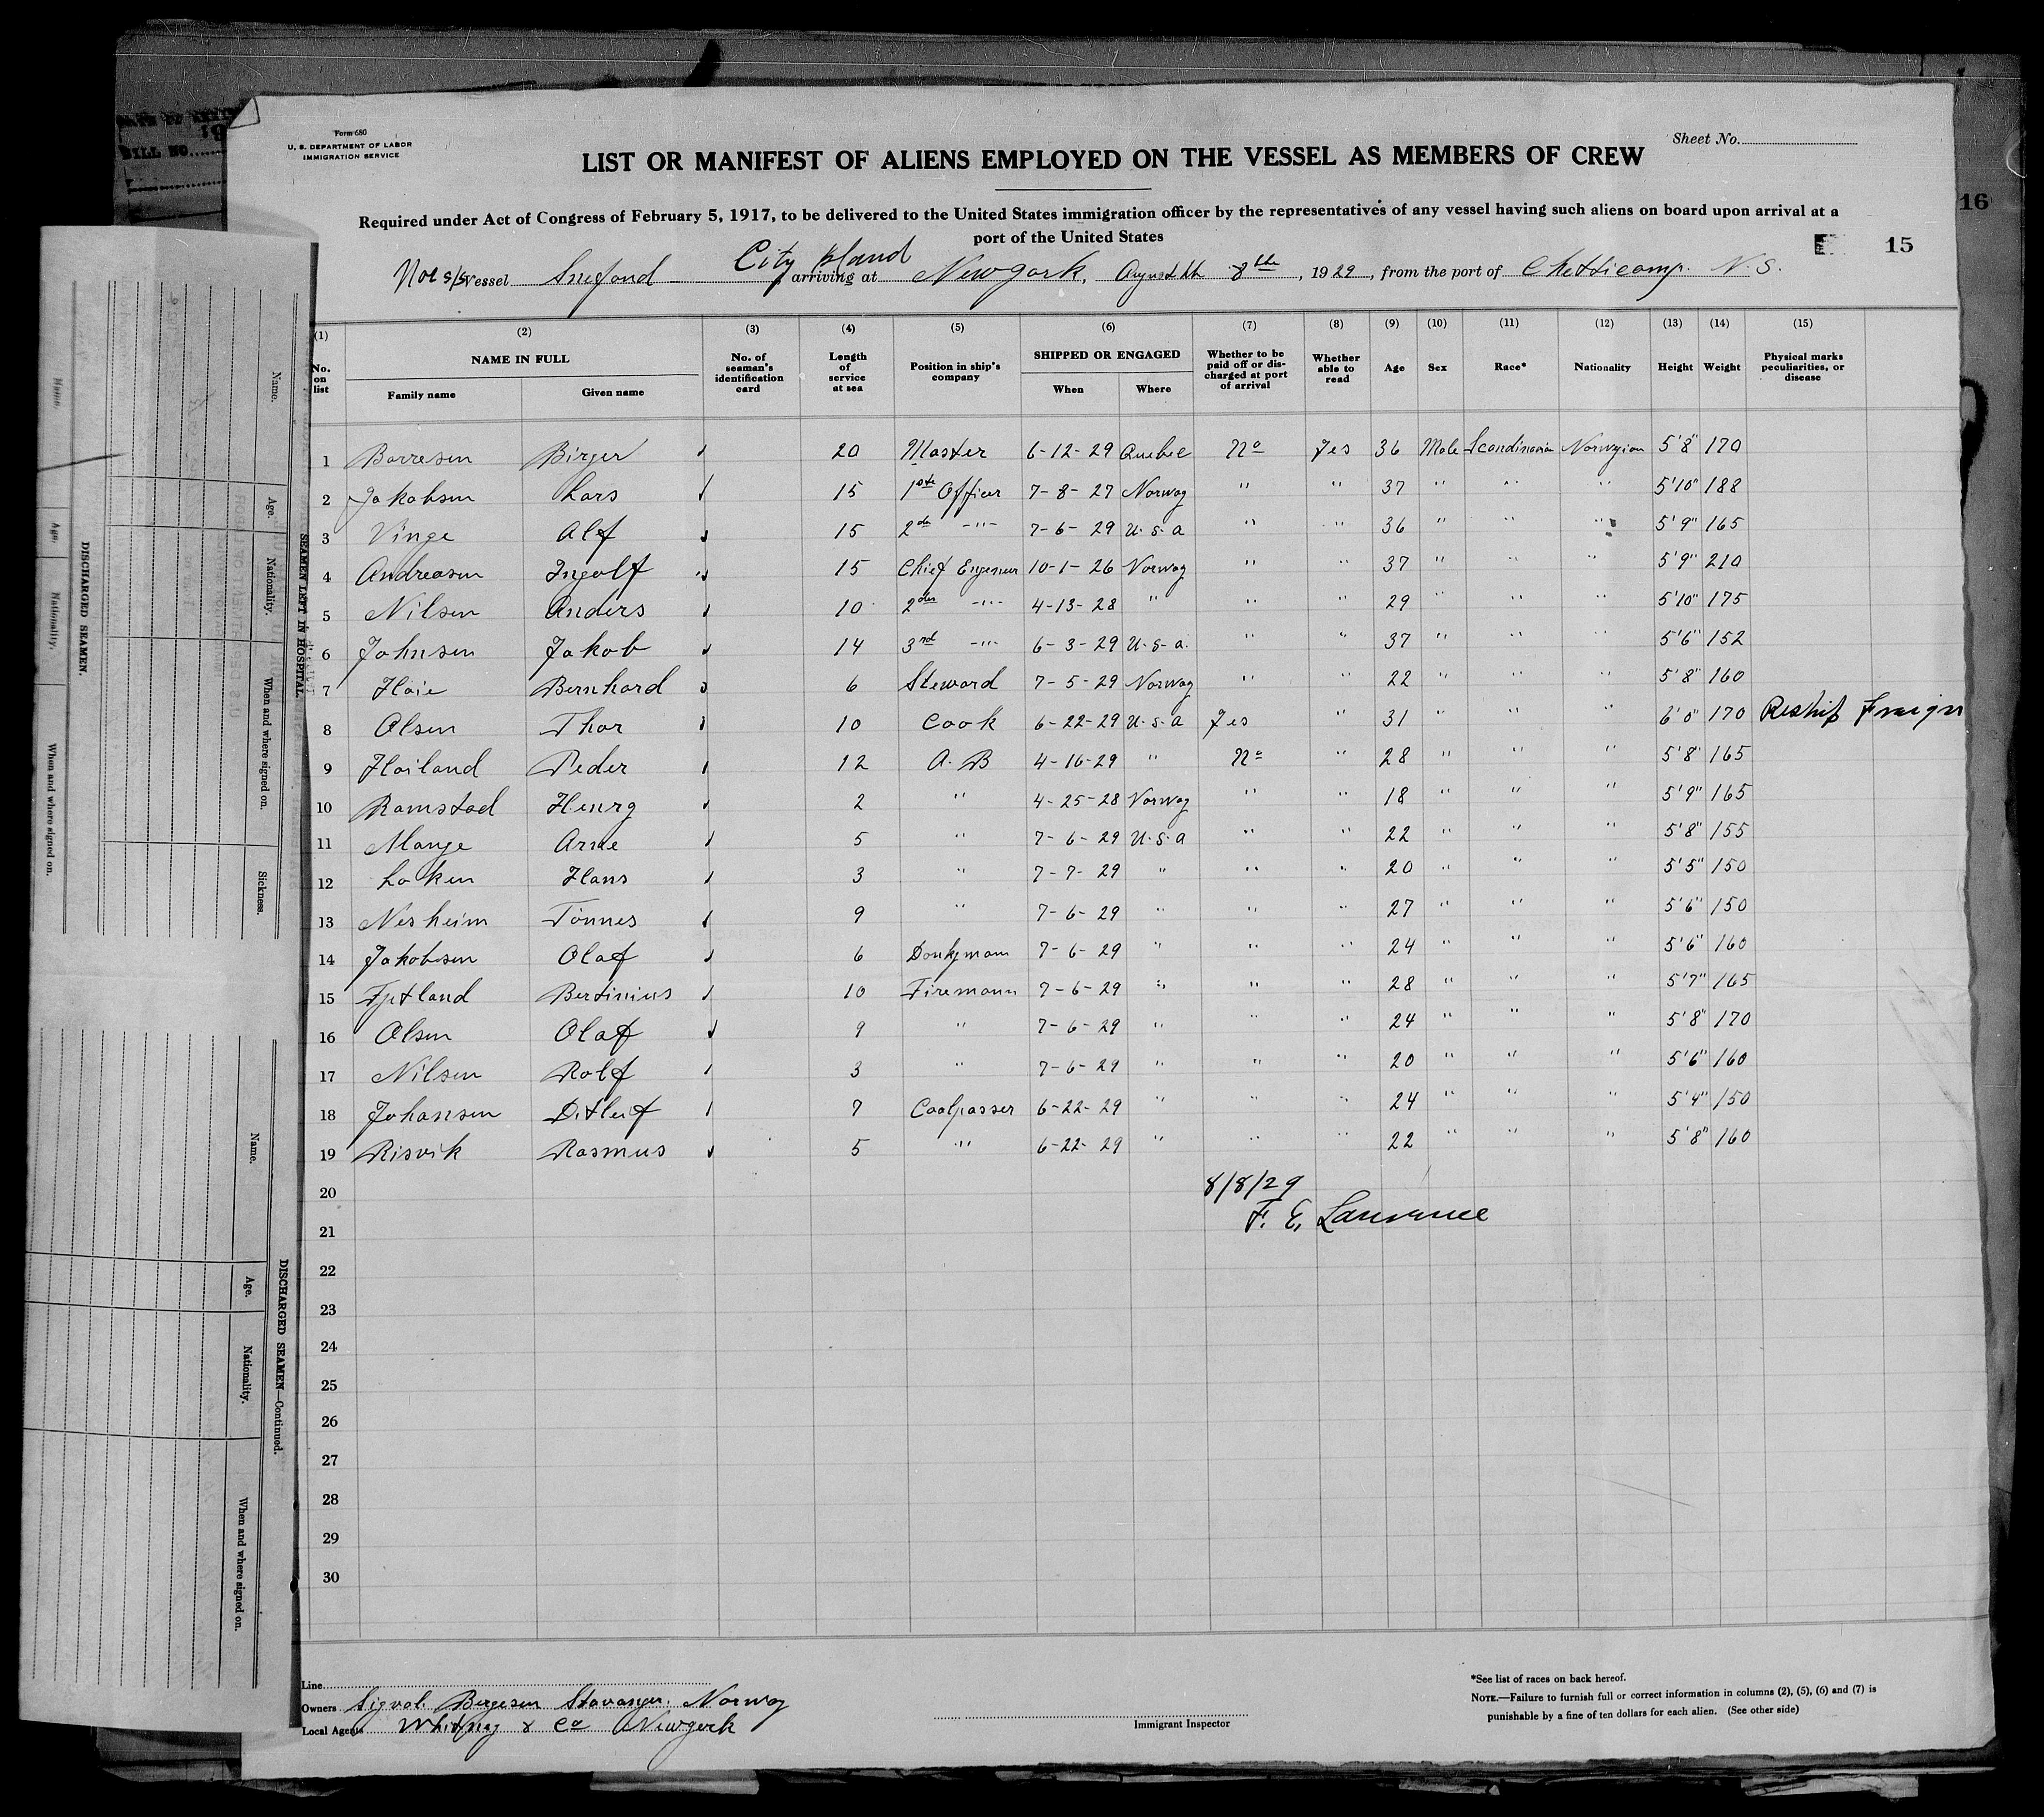 Form 680
U. S. DEPARTMENT OF LABOR
IMMIGRATION SERVICE
Sheet No.
LIST OR MANIFEST OF ALIENS EMPLOYED ON THE VESSEL AS MEMBERS OF CREW
Required under Act of Congress of February 5, 1917, to be delivered to the United States immigration officer by the representatives of any vessel having such aliens on board upon arrival at a
port of the United States
15
16
City Island
Nor s/s Vessel Snefond arriving at Newyork, August 8th, 1929, from the port of Chetticamp. N.S.
(1) (2) (3) (4) (5) (6) (7) (8) (9) (10) (11) (12) (13) (14) (15)
No. on list NAME IN FULL Family name Given name No. of seaman's identification card Length of service at sea Position in ship's company SHIPPED OR ENGAGED When Where Whether to be paid off or discharged at port of arrival Whether able to read Age Sex Race* Nationality Height Weight Physical marks peculiarities, or disease
1 Borresen Birger 20 Master 6-12-29 Quebec No Yes 36 Male Scandinavian Norwegian 5'8" 170
2 Jakobsen Lars 15 1ste Officer 7-8-27 Norway " " 37 " " " 5'10" 188
3 Vinge Alf 15 2de -"- 7-6-29 U.S.A " " 36 " " " 5'9" 165
4 Andreasen Ingolf 15 Chief Engeneer 10-1-26 Norway " " 37 " " " 5'9" 210
5 Nilsen Anders 10 2den -"- 4-13-28 " " " 29 " " " 5'10" 175
6 Johnsen Jakob 14 3rd -"- 6-3-29 U.S.A. " " 37 " " " 5'6" 152
7 Hoie Bernhard 6 Steward 7-5-29 Norway " " 22 " " " 5'8" 160
8 Olsen Thor 10 Cook 6-22-29 U.S.A Yes " 31 " " " 6'0" 170 Reship Foreign
9 Hoiland Peder 12 A.B 4-16-29 " No " 28 " " " 5'8" 165
10 Ramstad Henry 2 " 4-25-28 Norway " " 18 " " " 5'9" 165
11 Mange Arne 5 " 7-6-29 U.S.A " " 22 " " " 5'8" 155
12 Loken Hans 3 " 7-7-29 " " " 20 " " " 5'5" 150
13 Nesheim Tönnes 9 " 7-6-29 " " " 27 " " " 5'6" 150
14 Jakobsen Olaf 6 Donkyman 7-6-29 " " " 24 " " " 5'6" 160
15 Fjetland Bertinius 10 Firemann 7-6-29 " " " 28 " " " 5'7" 165
16 Olsen Olaf 9 " 7-6-29 " " " 24 " " " 5'8" 170
17 Nilsen Rolf 3 " 7-6-29 " " " 20 " " " 5'6" 160
18 Johansen Ditlef 7 Coalpasser 6-22-29 " " " 24 " " " 5'4" 150
19 Risvik Rasmus 5 " 6-22-29 " " " 22 " " " 5'8" 160
20 8/8/29
21 F. E. Lawrence
22
23
24
25
26
27
28
29
30
Line
Owners Sigval. Bergesen Stavanger. Norway
Local Agents Whitney & Co Newyork
Immigrant Inspector
*See list of races on back hereof.
NOTE.—Failure to furnish full or correct information in columns (2), (5), (6) and (7) is
punishable by a fine of ten dollars for each alien. (See other side)
BILL NO.
SEAMEN LEFT IN HOSPITAL
Name.
Age.
Nationality.
When and where signed on.
Sickness.
DISCHARGED SEAMEN.
Name.
Age.
Nationality.
When and where signed on.
DISCHARGED SEAMEN—Continued.
Name.
Age.
Nationality.
When and where signed on.